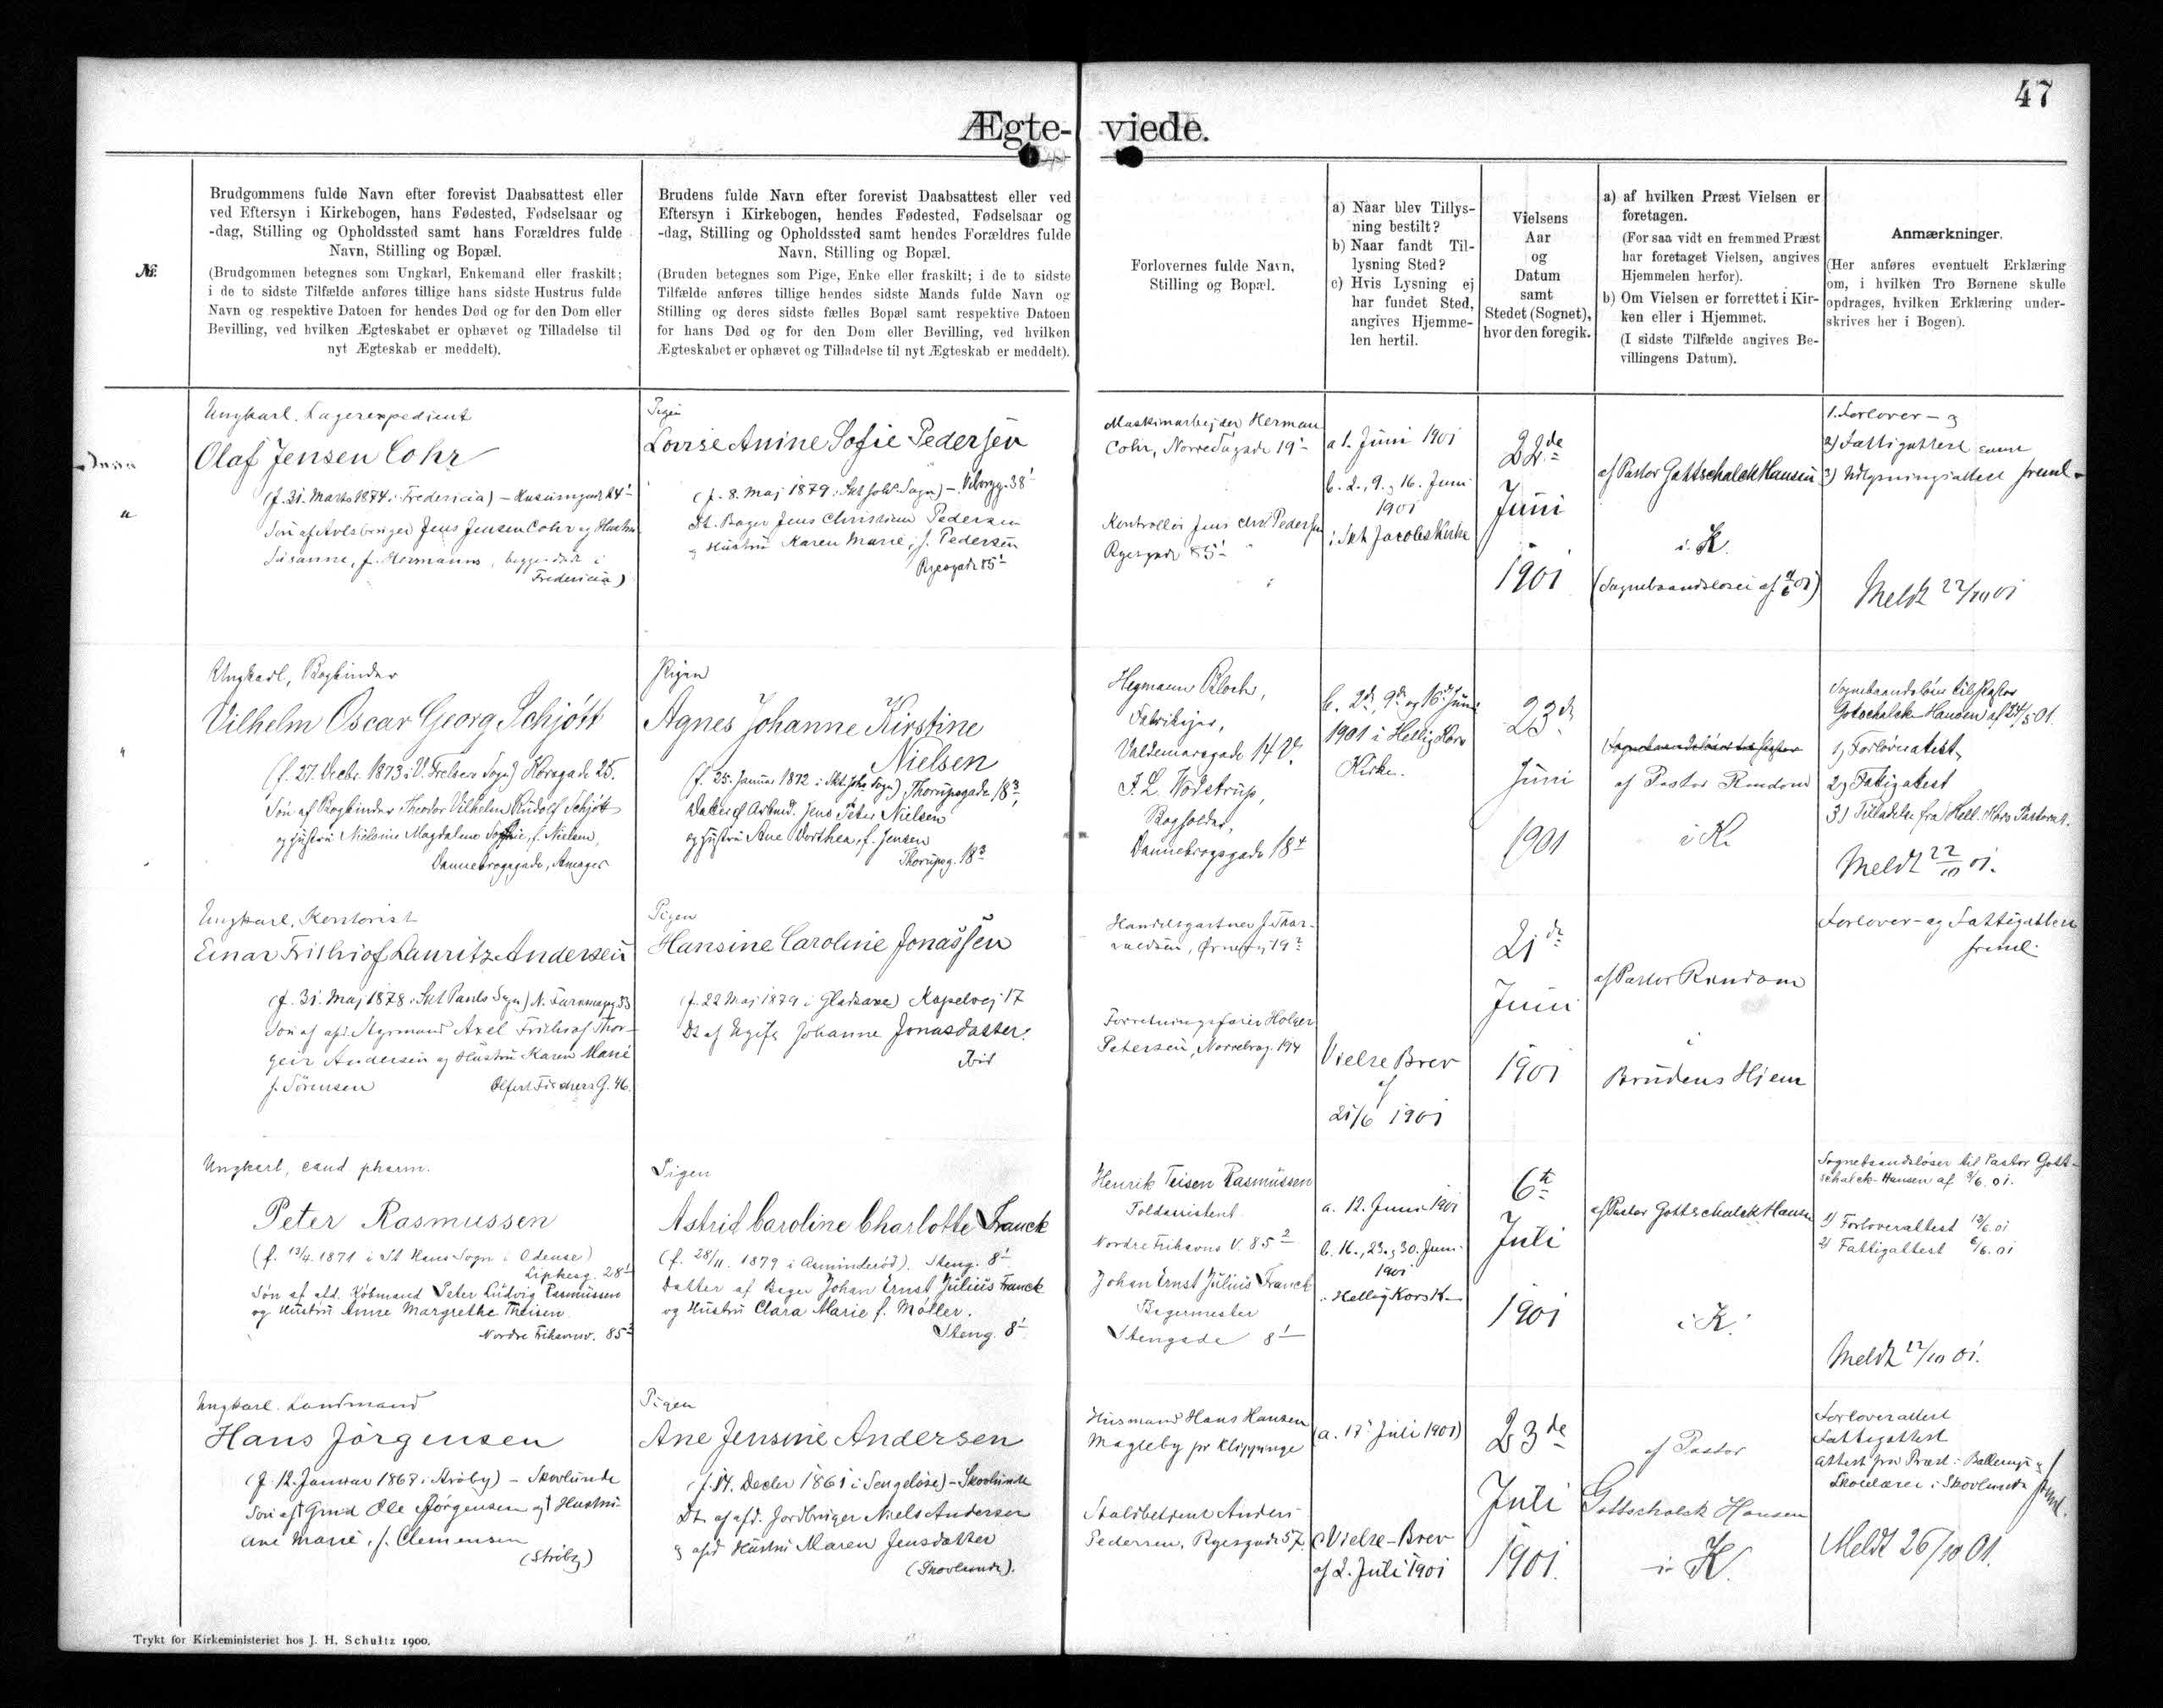 47
Ægte- viede.
№.
Brudgommens fulde Navn efter forevist Daabsattest eller
ved Eftersyn i Kirkebogen, hans Fødested, Fødselsaar og
-dag, Stilling og Opholdssted samt hans Forældres fulde
Navn, Stilling og Bopæl.
(Brudgommen betegnes som Ungkarl, Enkemand eller fraskilt;
i de to sidste Tilfælde anføres tillige hans sidste Hustrus fulde
Navn og respektive Datoen for hendes Død og for den Dom eller
Bevilling, ved hvilken Ægteskabet er ophævet og Tilladelse til
nyt Ægteskab er meddelt).
Brudens fulde Navn efter forevist Daabsattest eller ved
Eftersyn i Kirkebogen, hendes Fødested, Fødselsaar og
-dag, Stilling og Opholdssted samt hendes Forældres fulde
Navn, Stilling og Bopæl.
(Bruden betegnes som Pige, Enke eller fraskilt; i de to sidste
Tilfælde anføres tillige hendes sidste Mands fulde Navn og
Stilling og deres sidste fælles Bopæl samt respektive Datoen
for hans Død og for den Dom eller Bevilling, ved hvilken
Ægteskabet er ophævet og Tilladelse til nyt Ægteskab er meddelt).
Forlovernes fulde Navn,
Stilling og Bopæl.
a) Naar blev Tillys-
ning bestilt?
b) Naar fandt Til-
lysning Sted?
c) Hvis Lysning ej
har fundet Sted,
angives Hjemme-
len hertil.
Vielsens
Aar
og
Datum
samt
Stedet (Sognet),
hvor den foregik.
a) af hvilken Præst Vielsen er
foretagen.
(For saa vidt en fremmed Præst
har foretaget Vielsen, angives
Hjemmelen herfor).
b) Om Vielsen er forrettet i Kir-
ken eller i Hjemmet.
(I sidste Tilfælde angives Be-
villingens Datum).
Anmærkninger.
(Her anføres eventuelt Erklæring
om, i hvilken Tro Børnene skulle
opdrages, hvilken Erklæring under-
skrives her i Bogen).
Ungkarl. Lagerexpedient
Olaf Jensen Cohr
(f. 31. Marts 1874 i Fredericia) –
Søn af Avlsbruger Jens Jensen Cohr og Hustru
Susanne, f. Hermanns, begge døde i
Fredericia)
Pigen
Lovise Anine Sofie Pedersen
(f. 8. Maj 1879 i Skt Joh's Sogn) – Viborgg. 38
Dt. Bager Jens Christian Pedersen
og Hustru Karen Marie, f. Pedersen
Ryesgade 85
Maskinarbejder Herman
Cohr, Nørre Søgade 19
Kontrollør Jens Chr. Pedersen
Ryesgade 85
a 1. Juni 1901
b. 2., 9. og 16. Juni
1901
i Skt Jacobs Kirke
22de
Juni
1901
af Pastor Gottschalck Hansen
i K.
(Sognebaandsløser af
1. Forlover- og
2) Fattigattest samt
3) Udlysningsattest freml.
Meldt 22/10 01
Ungkarl, Bogbinder
Vilhelm Oscar Georg Schjött
(f. 27. Decbr. 1873 i V. Frelsers Sogn) Korsgade 25.
Søn af Bogbinder Theodor Vilhelm Rudolf Schjött
og Hustru Nielsine Magdalene Sophie, f. Nielsen,
Dannebrogsgade, Amager
Pigen
Agnes Johanne Kirstine
Nielsen
(f. 25. Januar 1872 i Skt. Johs Sogn) Thorupsgade 18³,
Datter af Arbmd. Jens Peter Nielsen
og Hustru Ane Dorthea, f. Jensen
Thorupsg. 18³
Hegmann Bloch,
Fabrikejer,
Valdemarsgade 14 V.
F. L. Wodstrup,
Bogholder,
Dannebrogsgade 18⁴
b. 2d, 9d og 16d Juni
1901 i Hellig Kors
Kirke.
23d
Juni
1901
af Pastor Random
i K.
Sognebaandsløser til Pastor
Gotschalck-Hansen af 24/5 01.
1) Forloverattest
2) Fattigattest
3) Tilladelse fra Hell. Kors Pastorat.
Meldt 22/10 01.
Ungkarl, Kontorist
Einar Frithiof Lauritz Andersen
(f. 31. Maj 1878 i Skt Pauls Sogn) N. Farimagsg. 33
Søn af afd. Styrmand Axel Frithiof Thor-
geir Andersen og Hustru Karen Marie
f. Sørensen Olfert Fischers G. 46.
Pigen
Hansine Caroline Jonassen
(f. 22 Maj 1879 i Gladsaxe) Kapelvej 17
Dt af Ugifte Johanne Jonasdatter.
Ibid
Handelsgartner J. Thor-
valdsen, Ørnevej 19²
Forretningsfører Holger
Petersen, Nørrebrog. 194
Vielse Brev
af
21/6 1901
21de
Juni
1901
af Pastor Random
i
Brudens Hjem
Forlover- og Fattigattest
freml.
Ungkarl, cand pharm.
Peter Rasmussen
(f. 13/4. 1871 i St Hans Sogn i Odense)
28
Søn af afd. Købmand Peter Ludvig Rasmussen
og Hustru Anne Margrethe Theisen
Nordre Frihavnsv. 85²
Pigen
Astrid Caroline Charlotte Franck
(f. 28/11. 1879 i Asminderød). Steng. 8¹
Datter af Bager Johan Ernst Julius Franck
og Hustru Clara Marie f. Møller.
Steng. 8¹
Henrik Teisen Rasmussen
Toldassistent
Nordre Frihavns V. 85²
Johan Ernst Julius Franck
Bagermester
Stengade 8¹
a. 12. Juni 1901
b. 16., 23. og 30. Juni
1901
i Hellig Kors K.
6te
Juli
1901
af Pastor Gottschalck Hansen
i K.
Sognebaandsløser til Pastor Gott-
schalck-Hansen af 3/6. 01.
1) Forloverattest 12/6. 01
2) Fattigattest 6/6. 01
Meldt 12/10 01.
Ungkarl. Landmand
Hans Jørgensen
(f. 12. Januar 1868 i Strøby) – Skovlunde
Søn af † Grmd Ole Jørgensen og † Hustru
Ane Marie, f. Clemensen
(Strøby)
Pigen
Ane Jensine Andersen
(f. 14. Decbr 1861 i Sengeløse) – Skovlunde
Dt. af afd. Jordbruger Niels Andersen
og afd Hustru Maren Jensdatter
(Skovlunde).
Husmand Hans Hansen
Magleby pr Klippinge
Staldbetjent Anders
Pedersen, Ryesgade 57.
(a. 17 Juli 1901)
c. Vielse-Brev
af 2. Juli 1901
23de
Juli
1901.
af Pastor
Gottschalck Hansen
i K.
Forloverattest
Fattigattest
Attest fra Præst i Ballerup og
Skolelærer i Skovlunde freml.
Meldt 26/10 01.
Trykt for Kirkeministeriet hos J. H. Schultz 1900.